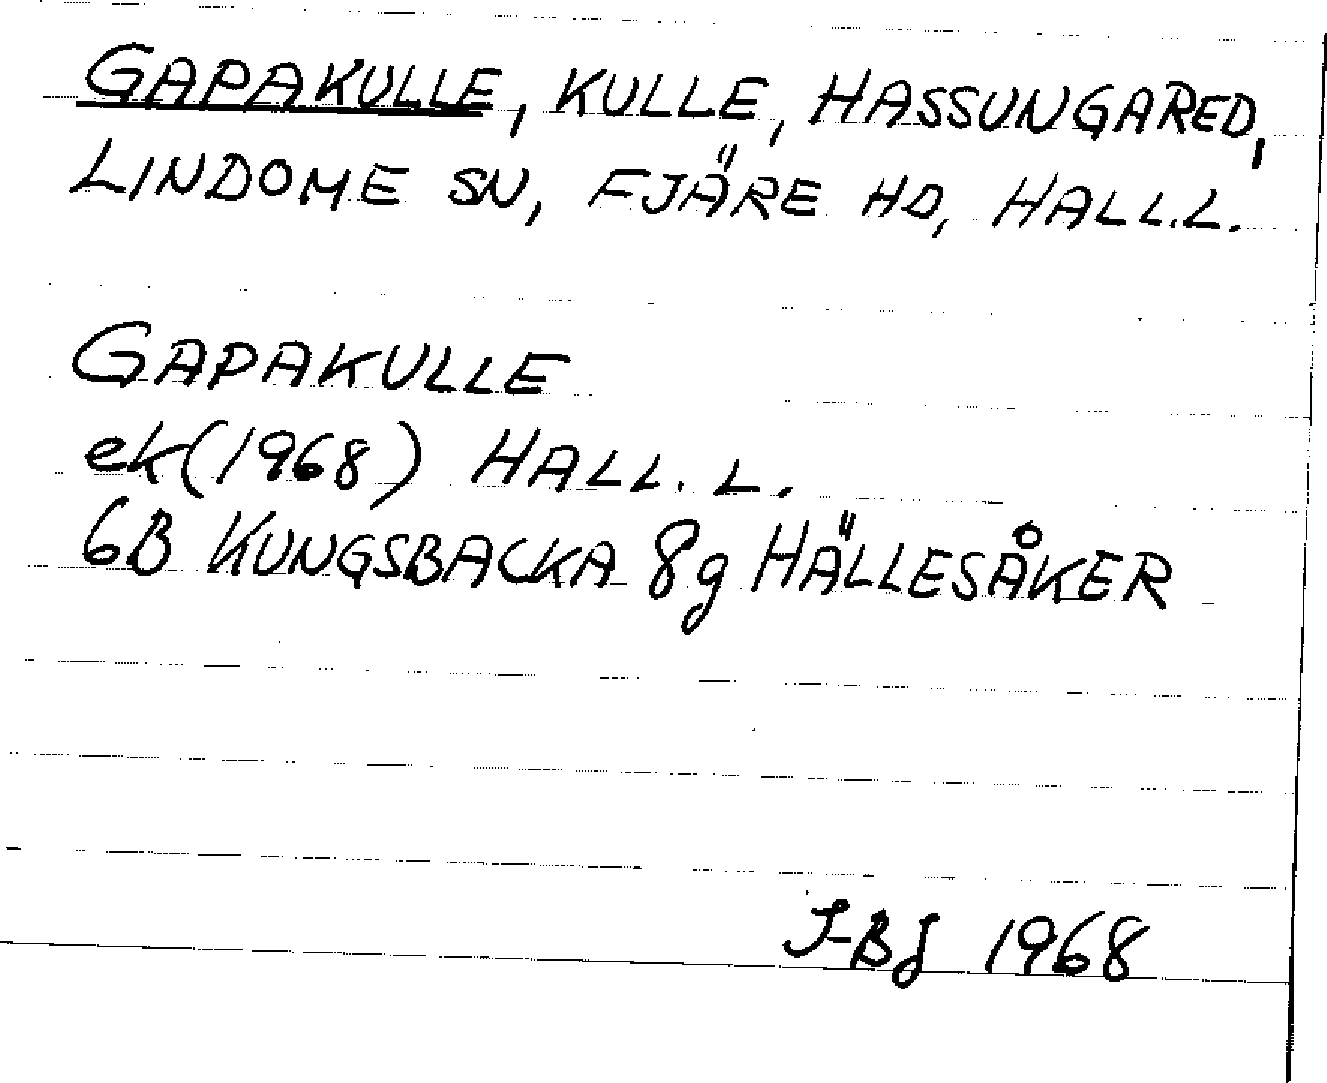 GAPAKULLE, KULLE, HASSUNGARED,
LINDOME SN, FJÄRE HD, HALL.L.
GAPAKULLE
ek(1968) HALL.L.
6B KUNGSBACKA 8g HÄLLESÅKER
J-BJ 1968